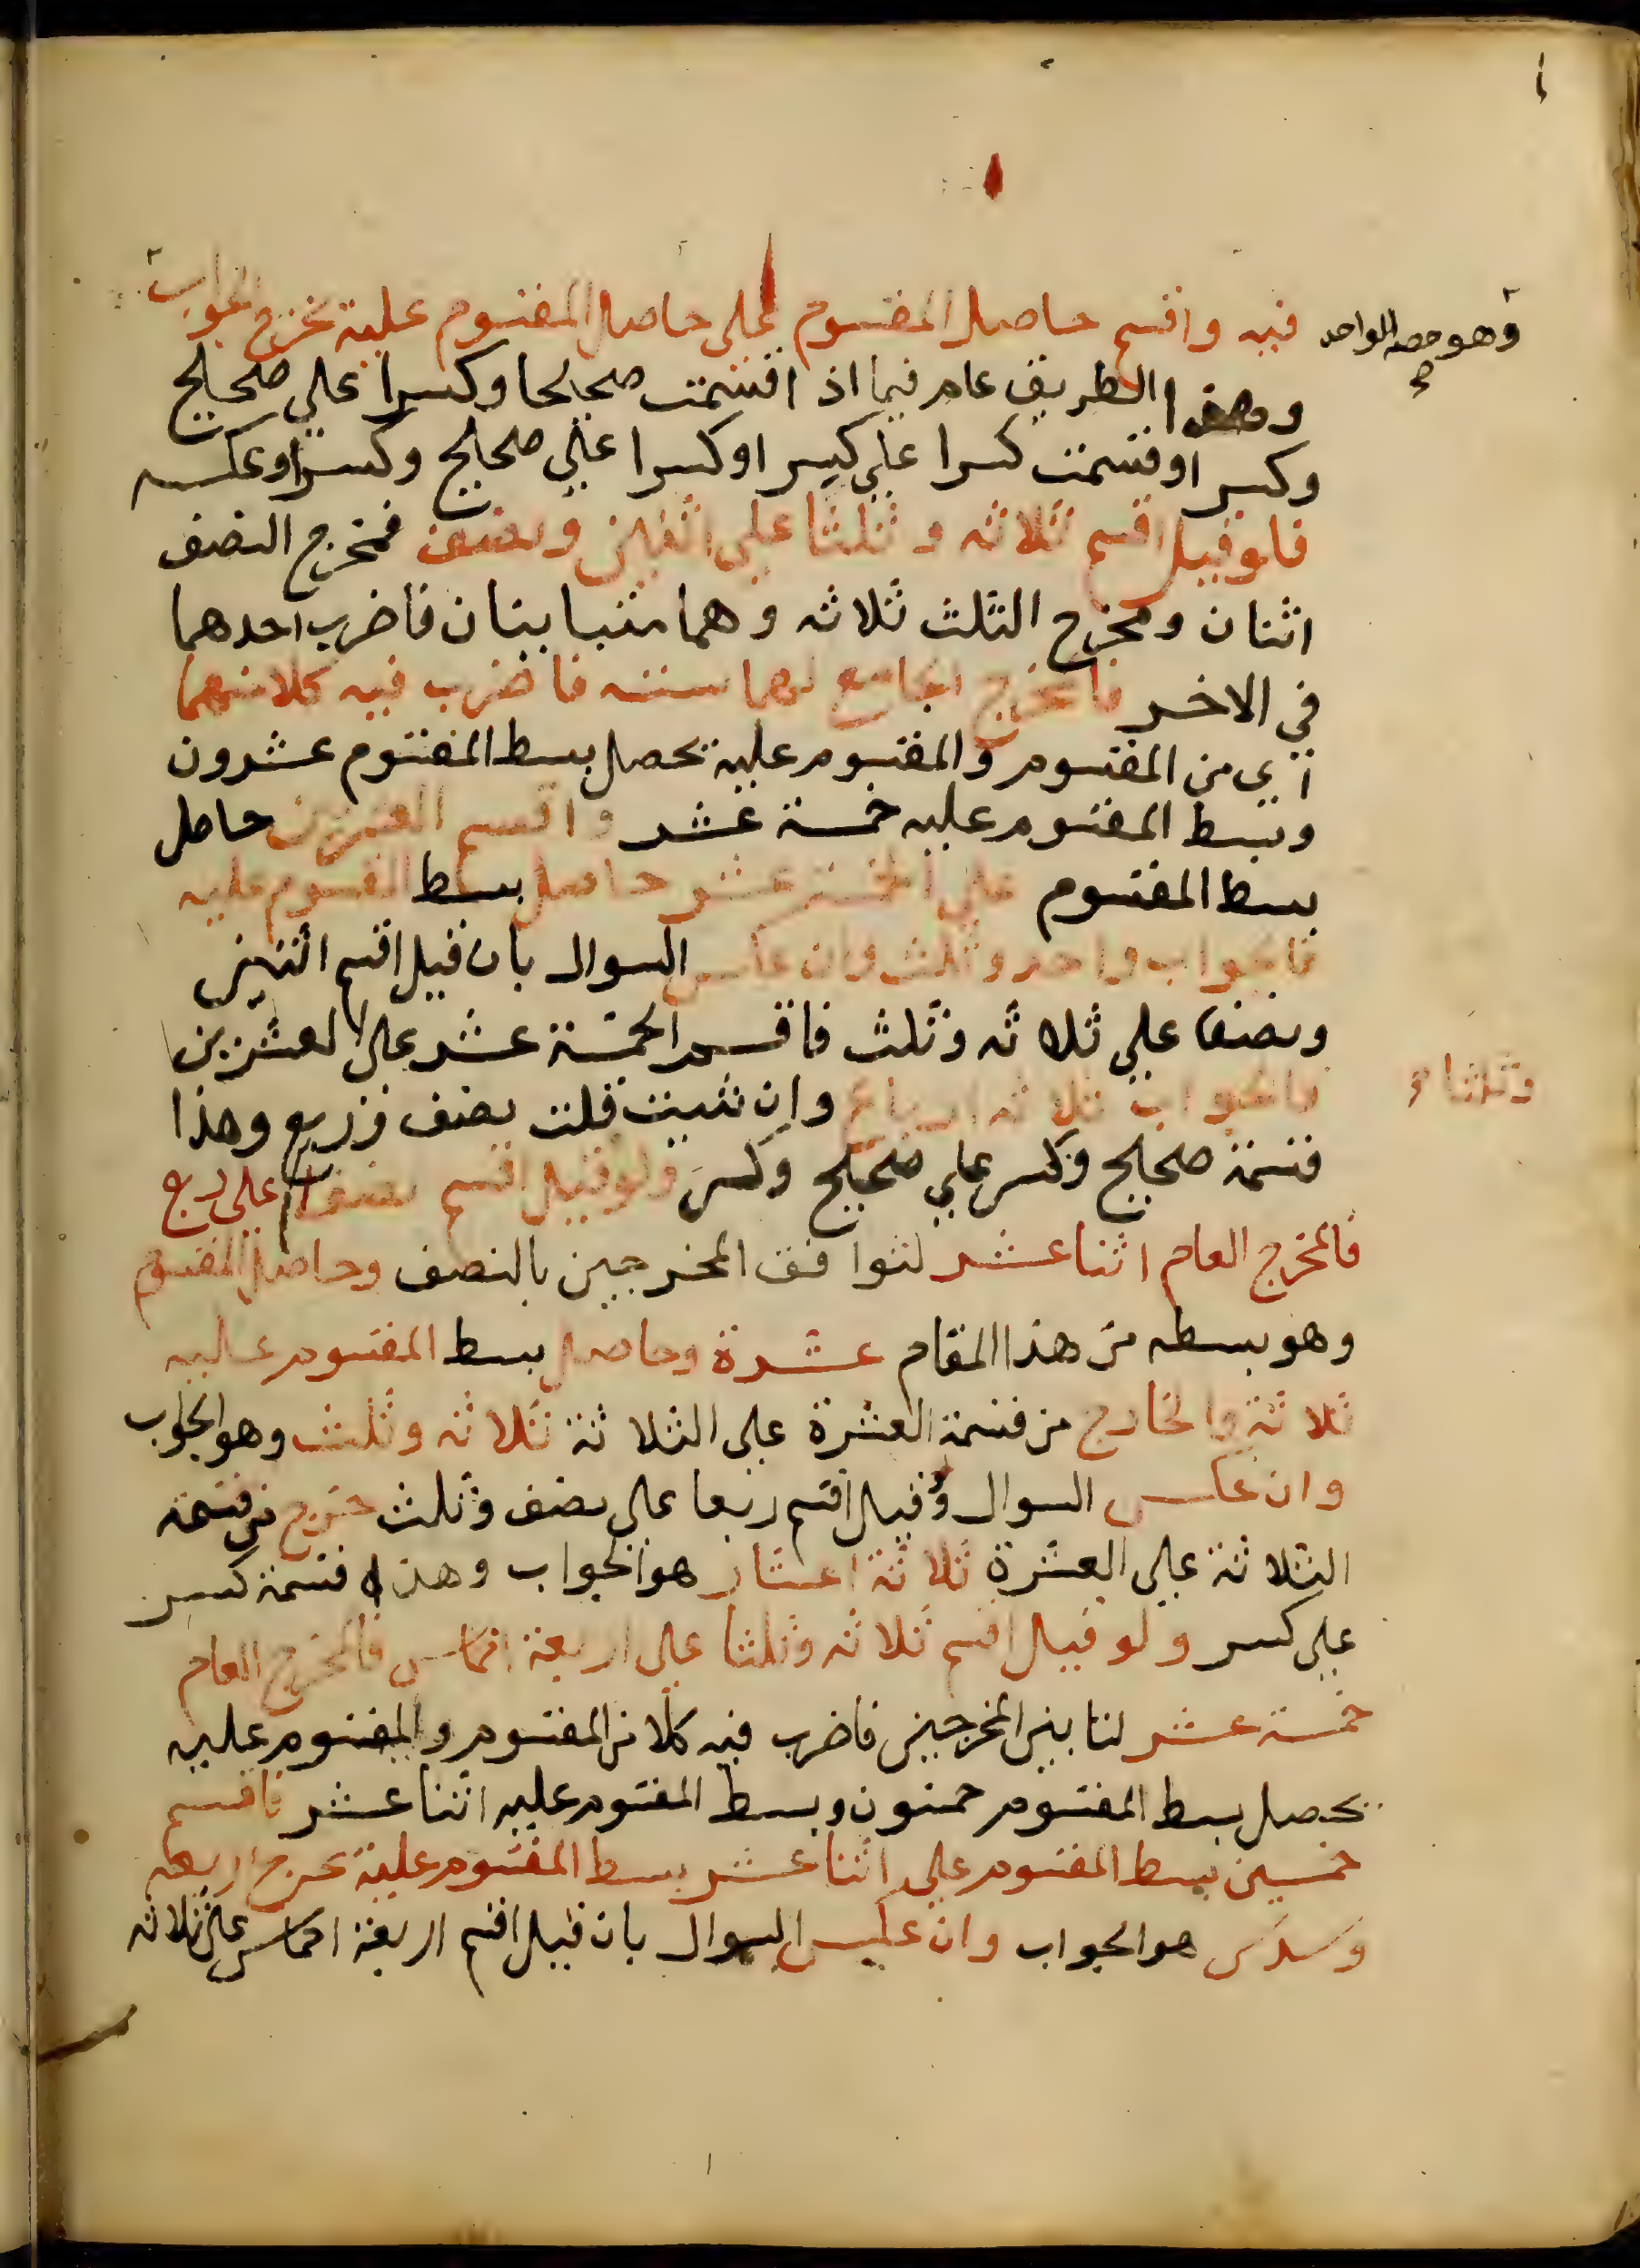 فيه واقسم حاصل المقسوم على حاصل المقسوم عليه يخرج الجواب
وهو حصه الواحد صح
وهذا الطريق عام فيما اذا قسمت صحيحا وكسرا على صحيح
وكسر او قسمت كسرا على كسر او كسرا على صحيح وكسر او عكسه
فلو قيل اقسم ثلاثه وثلثا على اثنين ونصف فمخرج النصف
اثنان ومخرج الثلث ثلاثه وهما متباينان فاضرب احدهما
في الاخر فالمخرج الجامع لهما سته فاضرب فيه كلا منهما
اي من المقسوم والمقسوم عليه يحصل بسط المقسوم عشرون
وبسط المقسوم عليه خمسة عشر واقسم العشرين حاصل
بسط المقسوم على الخمسة عشر حاصل بسط المقسوم عليه
فالجواب واحد وثلث وان عكس السوال بان قيل اقسم اثنين
ونصفا على ثلاثه وثلث فاقسم الخمسة عشر على العشرين
فالجواب ثلاثه ارباع وان شيت قلت نصف وربع وهذا
وثلثا
قسمة صحيح وكسر على صحيح وكسر ولو قيل اقسم نصفا على ربع
فالمخرج العام اثنا عشر لتوافق المخرجين بالنصف وحاصل المقسوم
وهو بسطه من هذا المقام عشرة وحاصل بسط المقسوم عليه
ثلاثة والخارج من قسمة العشرة على الثلاثة ثلاثه وثلث وهو الجواب
وان عكس السوال وقيل اقسم ربعا على نصف وثلث خرج من قسمة
الثلاثة على العشرة ثلاثة اعشار هو الجواب وهذه قسمة كسر
على كسر ولو قيل اقسم ثلاثه وثلثا على اربعة اخماس فالمخرج العام
خمسة عشر لتباين المخرجين فاضرب فيه كلا من المقسوم والمقسوم عليه
يحصل بسط المقسوم خمسون وبسط المقسوم عليه اثنا عشر فاقسم
خمسين بسط المقسوم على اثنا عشر بسط المقسوم عليه يخرج اربعه
وسدس هو الجواب وان عكس السوال بان قيل اقسم اربعة اخماس على ثلاثه